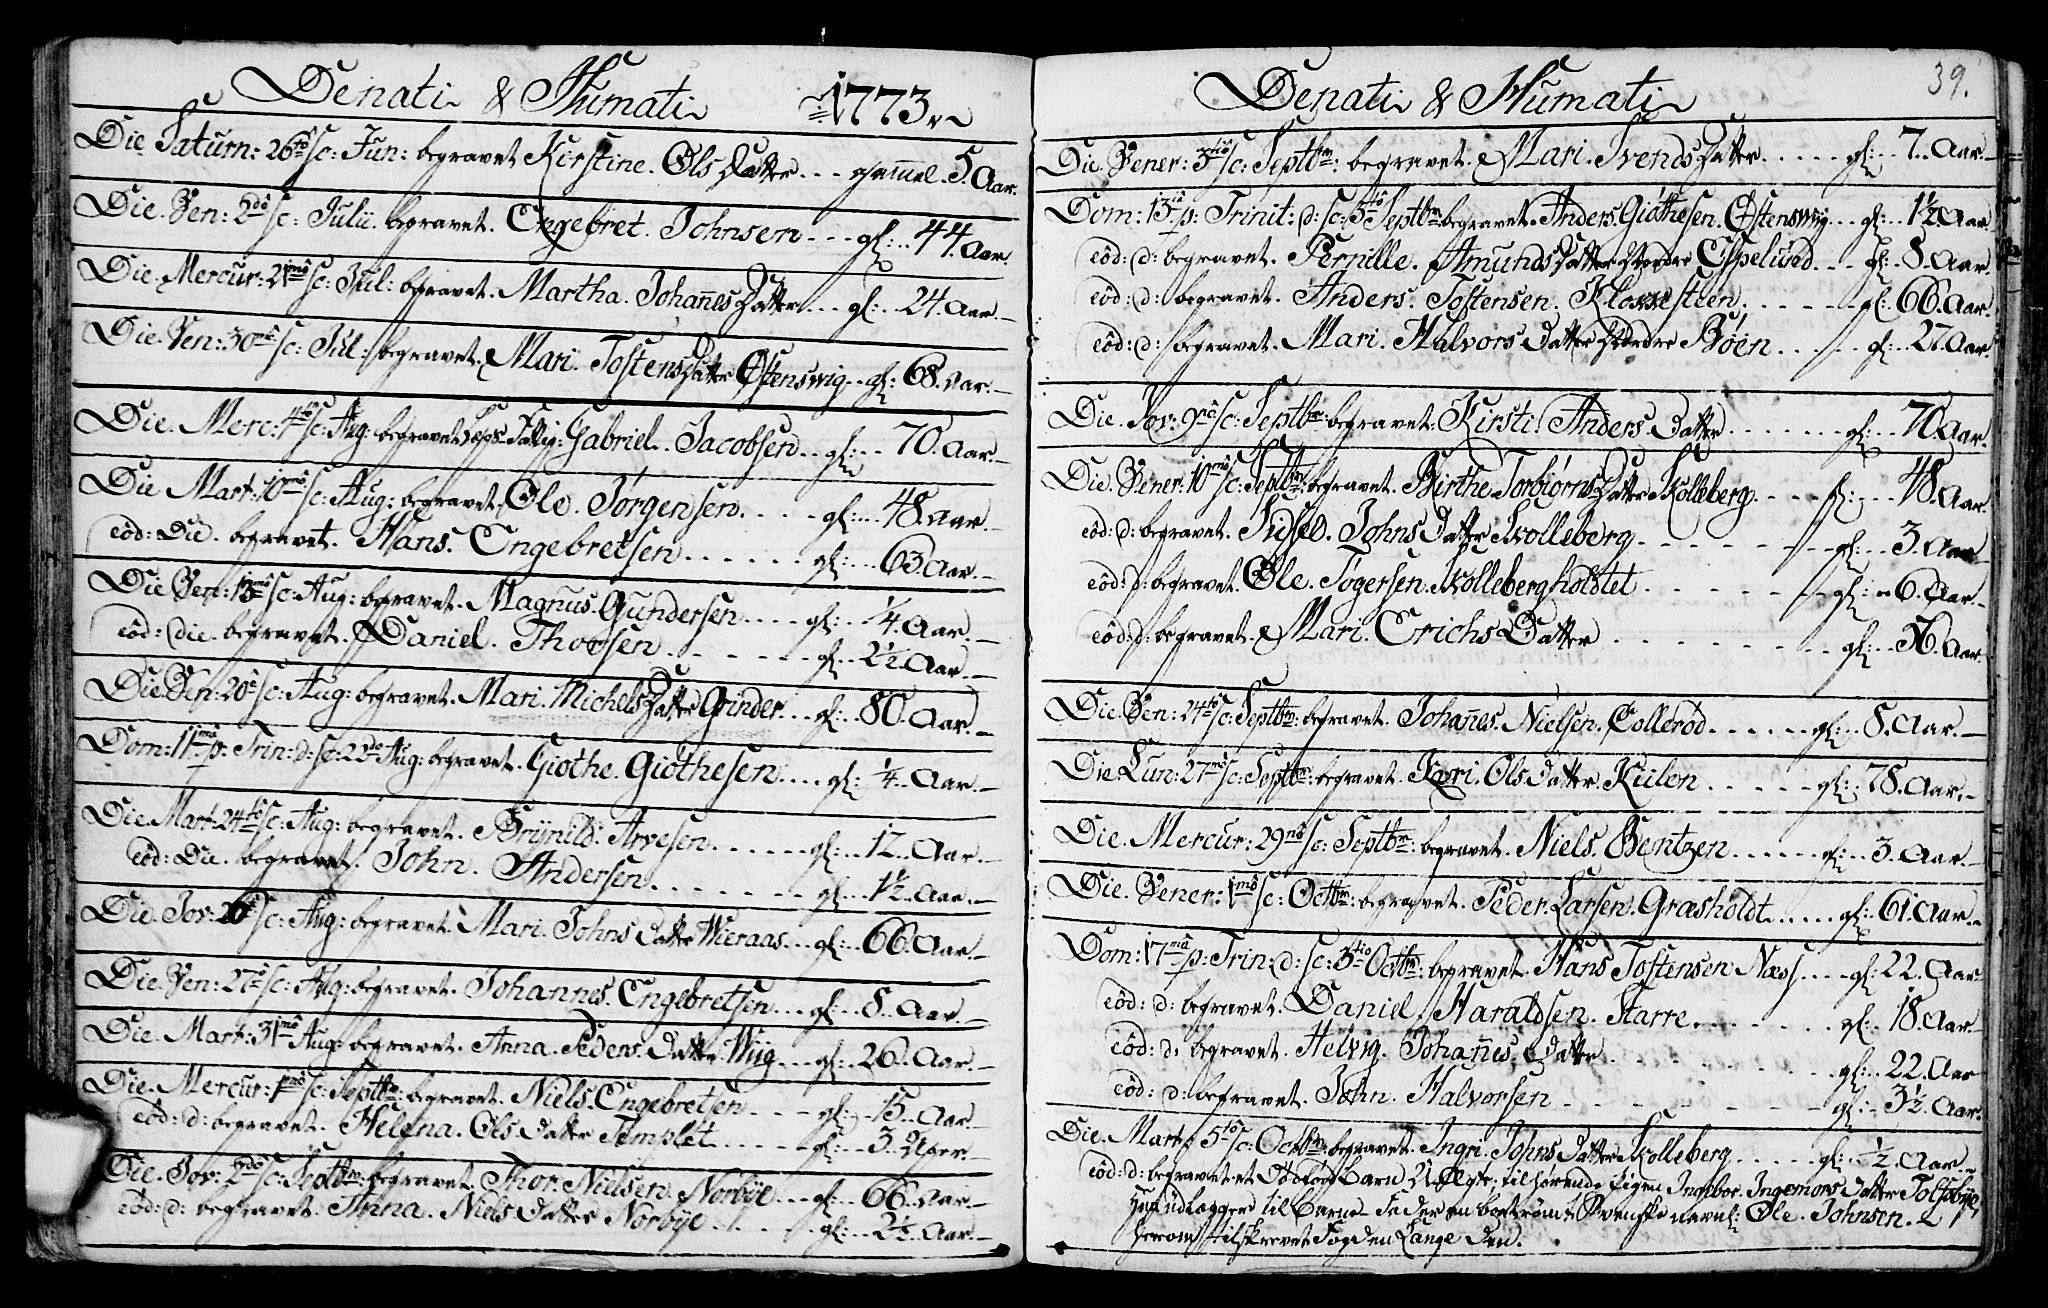 Denati & Humati 1773
Die Saturn: 26tô sc: Jun: begravet Kirstine. Ols Datter... gammel. 5. Aar.
Die. Ven: 2dô sc: Julii. begravet. Engebret. Johnsen... gl:.. 44. Aar.
Die. Mercur: 21mô sc: Jul: begravet. Martha. Johañes Datter... gl:. 24. Aar.
Die. Ven: 30mô sc: Jul: begravet. Mari. Tostens Datter Østenswig.. gl: 68. Aar.
Die. Merc: 4tô sc: Aug: begravet Fattig: Gabriel. Jacobsen.. gl:.. 70. Aar.
Die Mart: 10mô sc: Aug: begravet. Ole. Jørgensen.... gl:... 48. Aar.
eôd: Die. begravet. Hans. Engebretsen...... gl:... 63. Aar.
Die Ven: 13mô sc: Aug: begravet. Magnus. Gundersen.... gl:.. 1/4. Aar.
eôd: die. begravet. Daniel. Thoosen....... gl:.. 2½. Aar.
Die. Ven: 20ô sc: Aug: begravet. Mari. Michels Datter Grinder... gl:. 80. Aar.
Dom: 11mâ p: Trin: d: sc: 22dô Aug: begravet. Giöthe. Giöthesen.... gl:. 1/4. Aar.
Die. Mart: 24tô sc: Aug: begravet. Brÿnild: Arvesen...... gl:.. 12. Aar.
eôd: Die. begravet. John. Andersen....... gl:.. 1½. Aar.
Die. Jov: 26 sc: Aug: begravet. Mari. Johns Datter Wieraas... gl:.. 66. Aar.
Die. Ven: 27ô sc: Aug: begravet. Johannes. Engebretsen... gl:.. 8. Aar.
Die. Mart: 31mô Aug: begravet. Anna. Peders. Datter. Wiig... gl:.. 26. Aar.
Die. Mercur: 1mô sc: Septbm: begravet. Niels. Engebretsen.... gl:... 15. Aar.
eôd: d: begravet. Helena. Ols Datter Templet..... gl:... 3. Uger.
Die. Jov: 2dô sc: Septbm: begravet. Thor. Nielsen. Norbÿe... gl:.. 66. Aar.
eôd: d: begravet. Anna. Niels Datter Norbÿe...... gl:... 2½. Aar.
Denati & Humati 39.
Die. Vener: 3tiô sc: Septbm: begravet. Mari. Svends Datter..... gl:.. 7. Aar.
Dom: 13iâ p: Trinit: d: sc: 5tô Septbm begravet. Anders. Giöthesen. Østenswiig... gl:. 1½. Aar.
eôd: d: begravet. Pernille. Amunds Datter Nordre Espelund... gl:. 8. Aar.
eôd: d: begravet. Anders. Tostensen. Klokkesteen....... gl:. 66. Aar.
eôd: d: begravet. Mari. Halvors Datter Nordre Bøen...... gl:.. 27. Aar.
Die. Jov: 9nô sc: Septbm: begravet: Kirsti Anders. Datter........ gl:... 70. Aar.
Die. Vener: 10mô sc: Septbm: begravet. Birthe. Torbiørns Datter Kolleberg.... gl:... 48. Aar.
eôd: d: begravet. Sidsel. Johns Datter Kolleberg........ gl:.. 3. Aar.
eôd: d: begravet. Ole. Togersen. Kollebergholdtet........ gl:.. 6. Aar.
eôd: d: begravet. Mari. Erichs Datter......... gl:... 56. Aar.
Die. Ven: 24tô sc: Septbm: begravet. Johañes. Nielsen. Collerød...... gl:.. 8. Aar.
Die. Lun: 27mô sc: Septbm: begravet. Kari. Ols Datter. Kiilen..... gl:. 78. Aar.
Die. Mercur: 29nô sc: Septbm: begravet. Niels. Bentzen...... gl:.. 3. Aar.
Die. Vener: 1mô sc: Octbm: begravet. Peder Larsen. Græsholdt..... gl:.. 61. Aar.
Dom: 17mâ p: Trin: d: sc: 3tiô Octbm: begravet. Hans Tostensen Næss.... gl: 22. Aar
eôd: d: begravet. Daniel. Haraldsen. Starre....... gl:. 18. Aar.
eôd: d: begravet. Helvig. Johañes. Datter......... gl:. 22. Aar
eôd: d: begravet. John. Halvorsen........ gl:. 3½. Aar.
Die. Mart: 5tô sc: Octbm begravet. Ingri. Johns Datter. Kolleberg..... gl:.. ½. Aar.
eôd: d: begravet et dødfød Barn Uægte, tilhørende Pigen Ingebor. Ingemors Datter Tolfsbÿe,
Hun udlagger til Barne-Fader en bortrømt Svenske navnl: Ole. Johnsen.
herom tilskrevet Fogden Lange den.